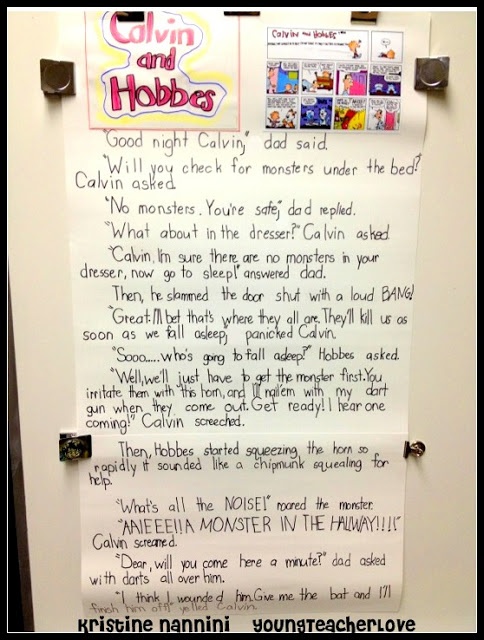 Calvin
and
Hobbes
Calvin and Hobbes
"Good night Calvin," dad said.
"Will you check for monsters under the bed?"
Calvin asked.
"No monsters. You're safe," dad replied.
"What about in the dresser?" Calvin asked.
"Calvin, I'm sure there are no monsters in your
dresser, now go to sleep!" answered dad.
Then, he slammed the door shut with a loud BANG!
"Great. I'll bet that's where they all are. They'll kill us as
soon as we fall asleep," panicked Calvin.
"Sooo.....who's going to fall asleep?" Hobbes asked.
"Well, we'll just have to get the monster first. You
irritate them with this horn, and I'll nail'em with my dart
gun when they come out. Get ready! I hear one
coming!" Calvin screeched.
Then, Hobbes started squeezing the horn so
rapidly it sounded like a chipmunk squealing for
help.
"What's all the NOISE!" roared the monster.
"AAIEEE!!A MONSTER IN THE HALLWAY!!!!"
Calvin screamed.
"Dear, will you come here a minute?" dad asked
with darts all over him.
"I think I wounded him. Give me the bat and I'll
finish him off!" yelled Calvin.
Kristine Nannini youngteacherlove